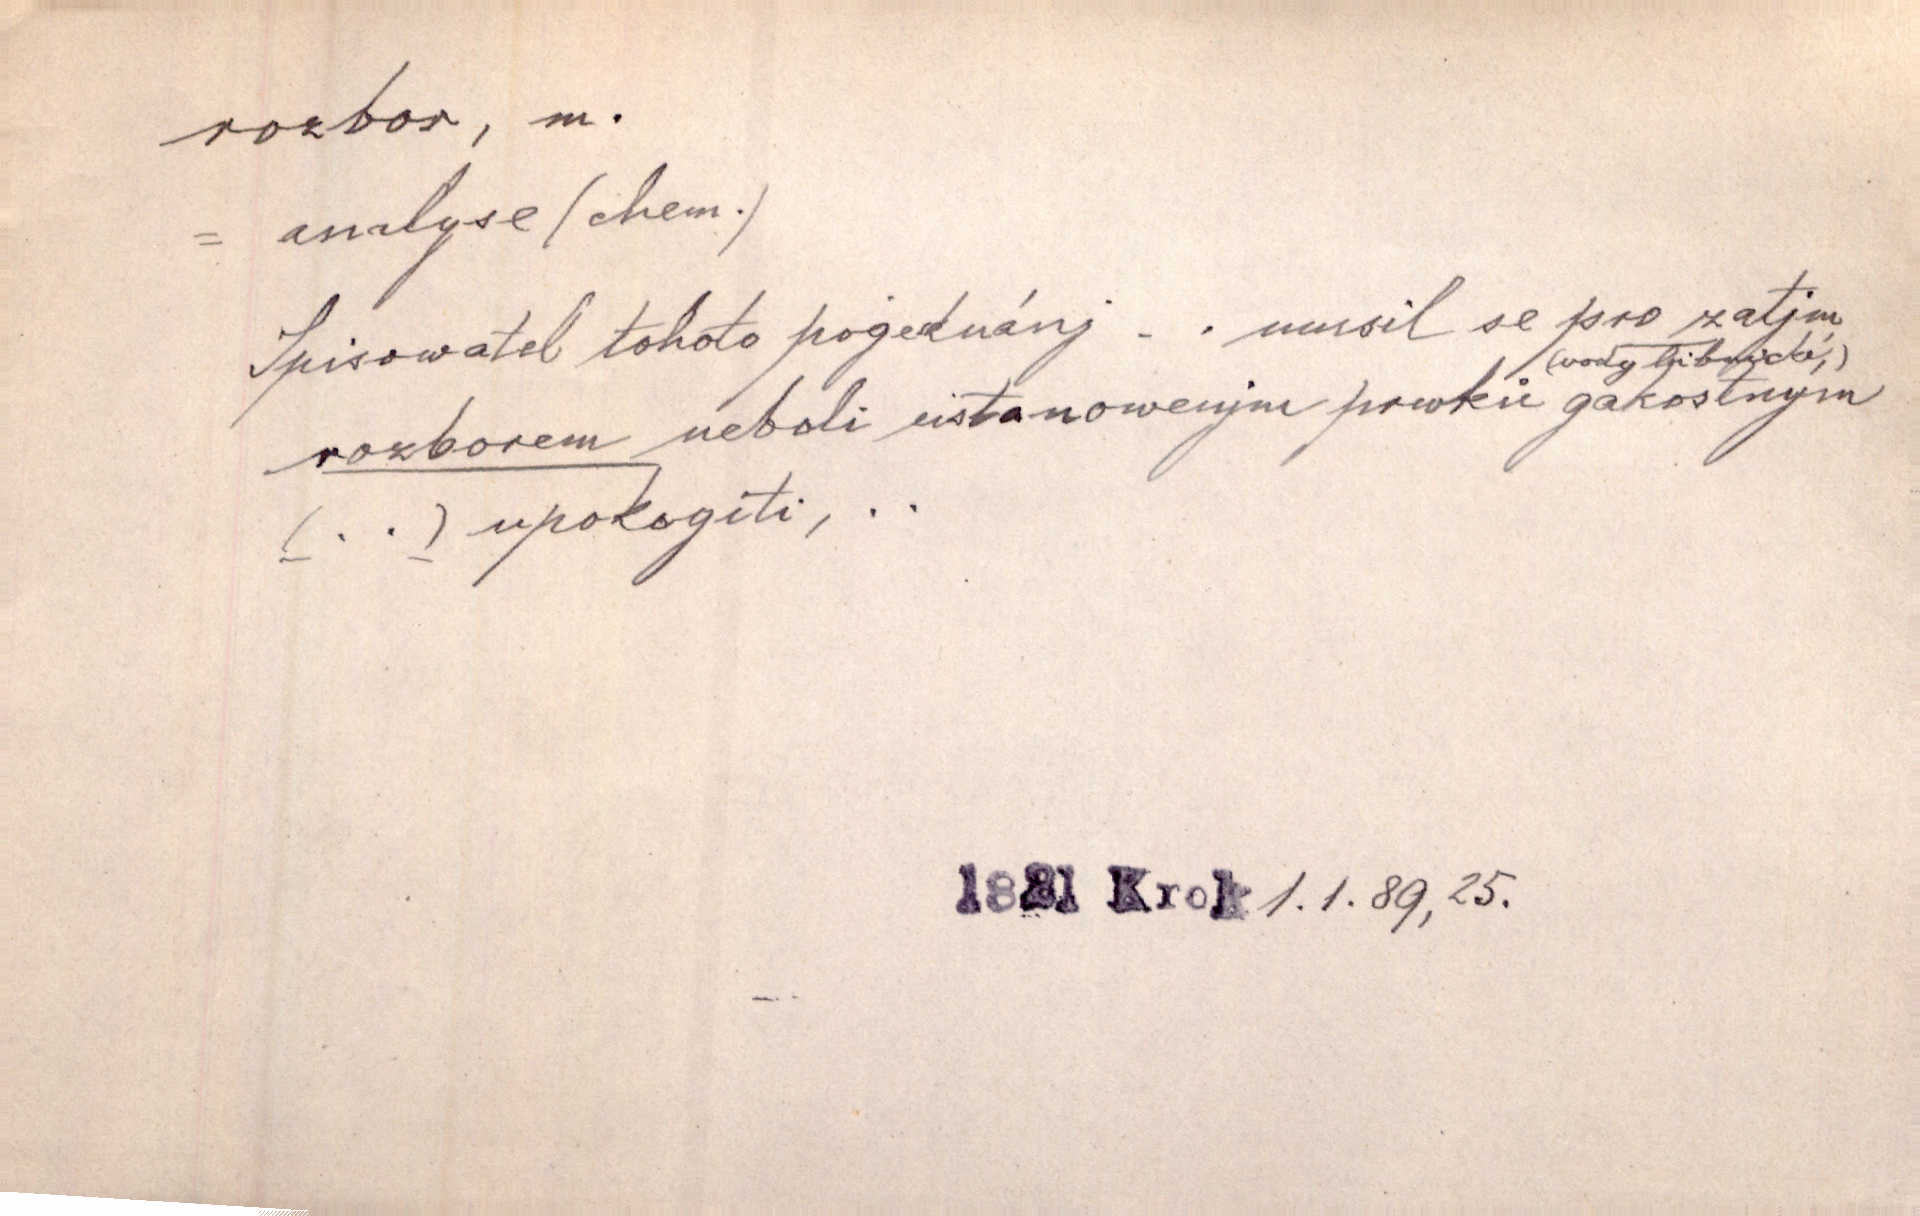 rozbor, m.
= analyse (chem.)
Spisowatel tohoto pogednánj - . musil se pro zatjm
(wody libnické,)
rozborem neboli ustanowenjm prwků gakostnym
(..) upokogiti, ..
1821 Krok 1.1.89,25.